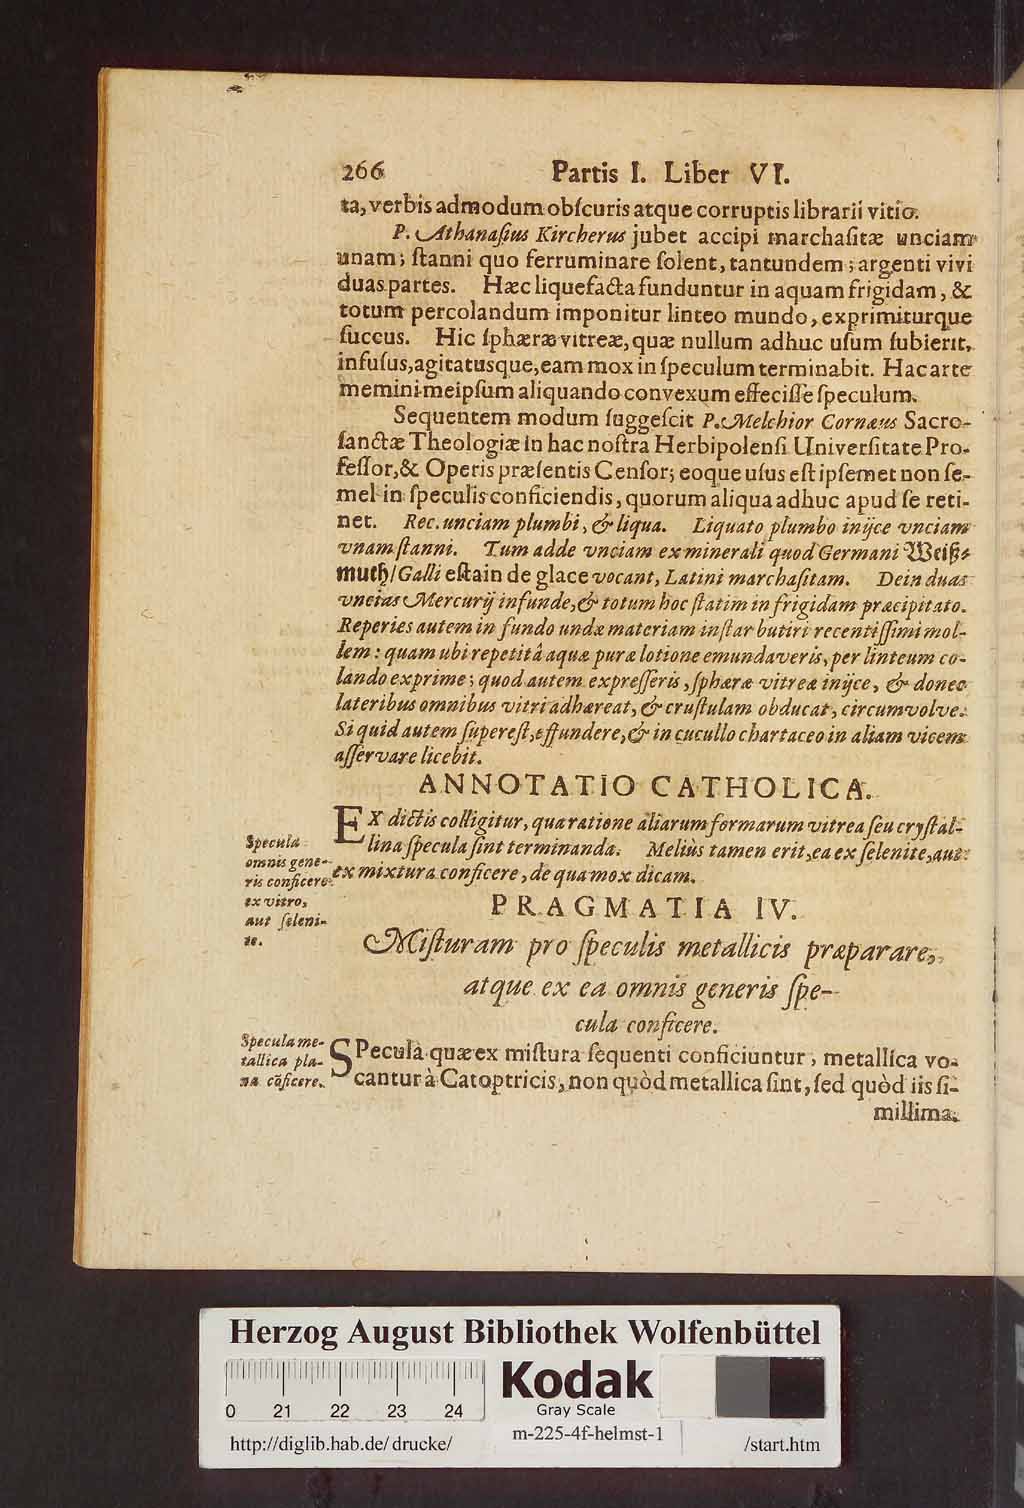 266 Partis I. Liber VI.
ta, verbis admodum obſcuris atque corruptis librarii vitio.
P. Athanaſius Kircherus jubet accipi marchaſitæ unciam
unam; ſtanni quo ferruminare ſolent, tantundem; argenti vivi
duas partes. Hæc liquefacta funduntur in aquam frigidam, &
totum percolandum imponitur linteo mundo, exprimiturque
ſuccus. Hic ſphæræ vitreæ, quæ nullum adhuc uſum ſubierit,
infuſus, agitatusque, eam mox in ſpeculum terminabit. Hac arte
memini meipſum aliquando convexum effeciſſe ſpeculum.
Sequentem modum ſuggeſcit P. Melchior Cornæus Sacro-
ſanctæ Theologiæ in hac noſtra Herbipolenſi Univerſitate Pro-
feſſor, & Operis præſentis Cenſor; eoque uſus eſt ipſemet non ſe-
mel in ſpeculis conficiendis, quorum aliqua adhuc apud ſe reti-
net. Rec. unciam plumbi, & liqua. Liquato plumbo inijce vnciam
vnam ſtanni. Tum adde vnciam ex minerali quod Germani Weiß-
muth/ Galli eſtain de glace vocant, Latini marchaſitam. Dein duas
vncias Mercurij infunde, & totum hoc ſtatim in frigidam præcipitato.
Reperies autem in fundo undæ materiam inſtar butiri recentiſſimi mol-
lem: quam ubi repetitâ aquæ puræ lotione emundaveris, per linteum co-
lando exprime; quod autem expreſſeris, ſphæræ vitreæ inijce, & donec
lateribus omnibus vitri adhæreat, & cruſtulam obducat, circumvolve.
Si quid autem ſupereſt, effundere, & in cucullo chartaceo in aliam vicem
aſſervare licebit.
ANNOTATIO CATHOLICA.
EX dictis colligitur, qua ratione aliarum formarum vitrea ſeu cryſtal-
lina ſpecula ſint terminanda. Meliùs tamen erit, ea ex ſelenite, aut
ex mixtura conficere, de qua mox dicam.
Specula
omnis gene-
ris conficere
ex vitro,
aut ſeleni-
te.
PRAGMATIA IV.
Miſturam pro ſpeculis metallicis præparare,
atque ex ea omnis generis ſpe-
cula conficere.
Specula me-
tallica pla-
na cõficere.
SPecula quæ ex miſtura ſequenti conficiuntur, metallica vo-
cantur à Catoptricis, non quòd metallica ſint, ſed quòd iis ſi-
millima.
Herzog August Bibliothek Wolfenbüttel
0 21 22 23 24
Kodak
Gray Scale
http://diglib.hab.de/drucke/ m-225-4f-helmst-1 /start.htm